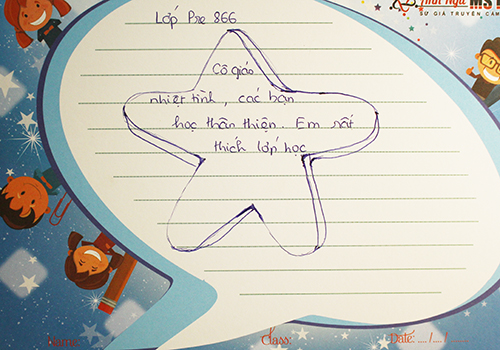 Lớp Pre 866
MS
SỨ GIẢ TRUYỀN
Cô giáo
nhiệt tình, các bạn
học thân thiện. Em rất
thích lớp học
Name:
Class:
Date: ..../..../....